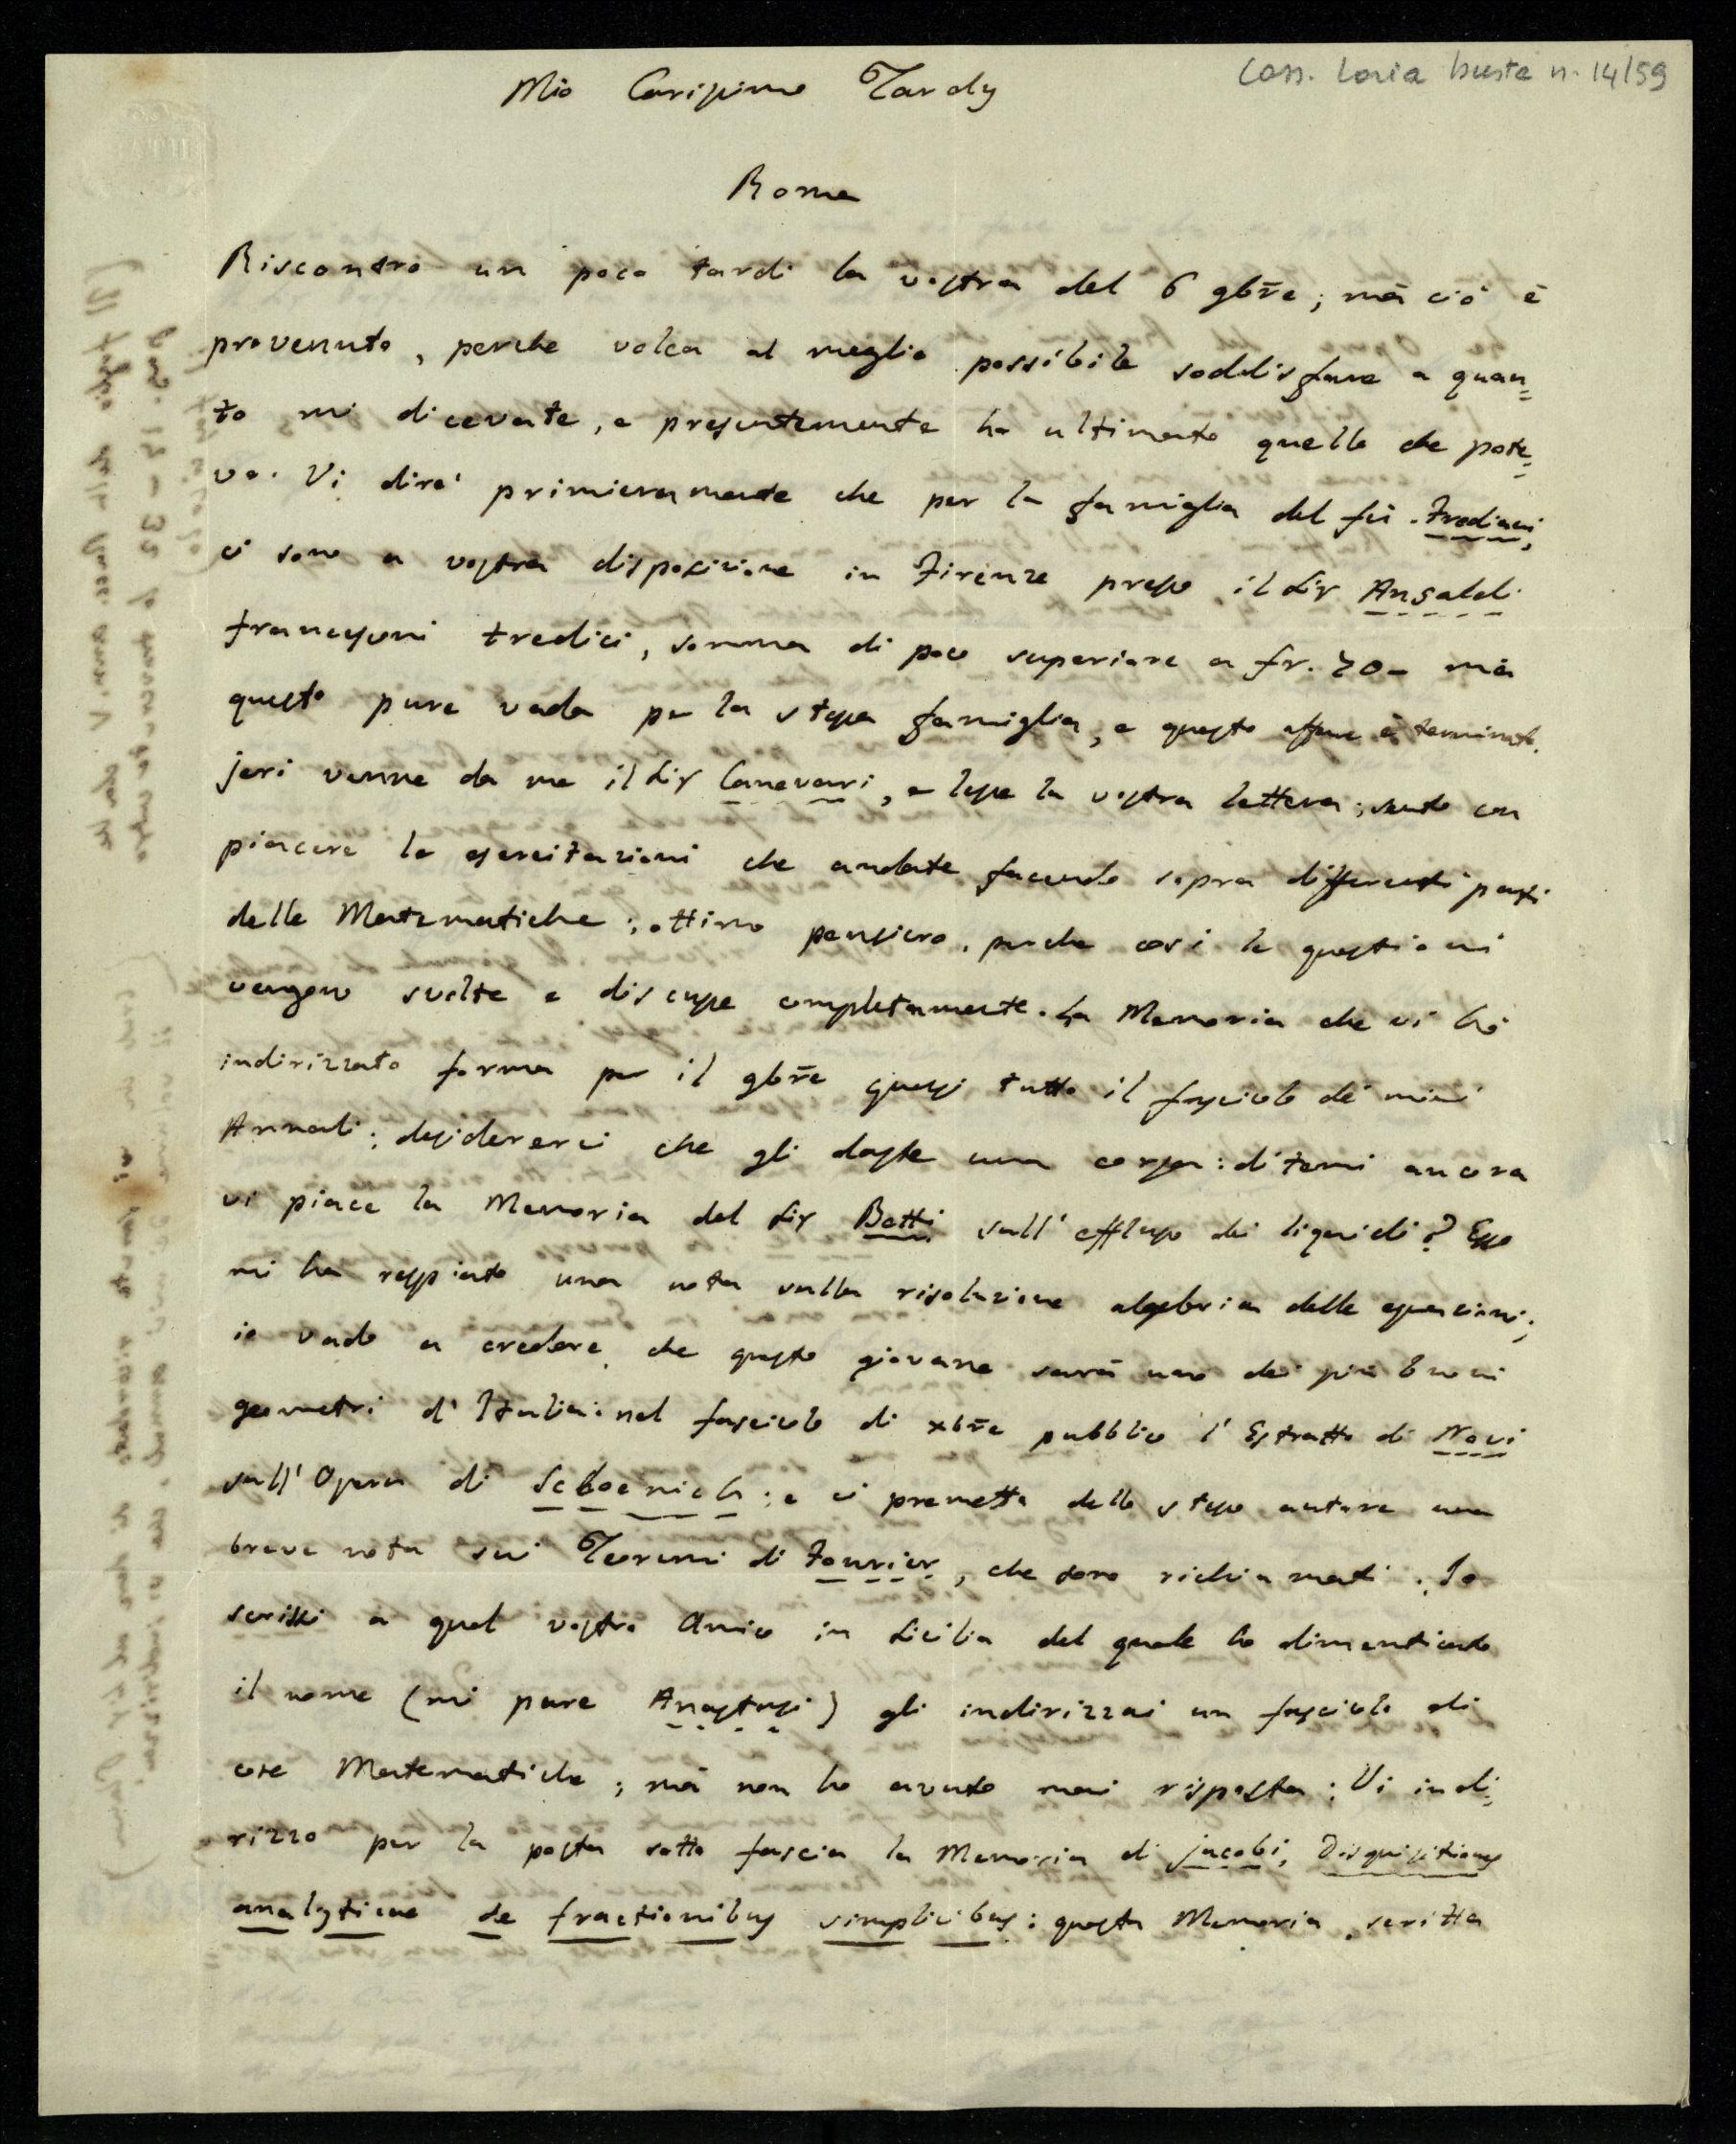 Cass. Loria busta n. 14/59
Mio Carissimo Tardy
Roma
Riscontro un poco tardi la vostra del 6 9bre; mà ciò è
provenuto, perche volea al meglio possibile soddisfare a quan=
to mi dicevate, e presentemente ho ultimato quello che pote=
vo. Vi dirò primieramente che per la famiglia del fù Frediani,
ci sono a vostra disposizione in Firenze presso il Sig Ansaldi
francesconi tredici, somma di poco superiore a fr. 70– mà
questo pure vada per la stessa famiglia, e questo affare è terminato.
jeri venne da me il Sig Canevari, e lesse la vostra lettera; sento con
piacere le esercitazioni che andate facendo sopra differenti parti
delle Matematiche; ottimo pensiero, perche così le questioni
vengono svolte e discusse completamente. La Memoria che vi hò
indirizzato forma per il 9bre quasi tutto il fascicolo de' miei
Annali; desidererei che gli daste una corsa: ditemi ancora
vi piace la Memoria del Sig Betti sull' efflusso dei liquidi? Esso
mi ha respinto una nota sulla risoluzione algebrica delle equazioni;
io vado a credere che questo giovane sarà uno dei più bravi
geometri d' Italia: nel fascicolo di xbre pubblico l' Estratto di Novi
sull' Opera di Schloemich: e ci premetto dello stesso autore una
breve nota sui Teoremi di Fourier, che sono richiamati. Io
scrissi a quel vostro Amico in Sicilia del quale ho dimenticato
il nome (mi pare Anastasi) gli indirizzai un fascicolo di
cose Matematiche; mà non ho avuto mai risposta; Vi indi=
rizzo per la posta sotto fascia la Memoria di jacobi, Disquisitiones
analyticae de fractionibus simplicibus: questa Memoria, scritta